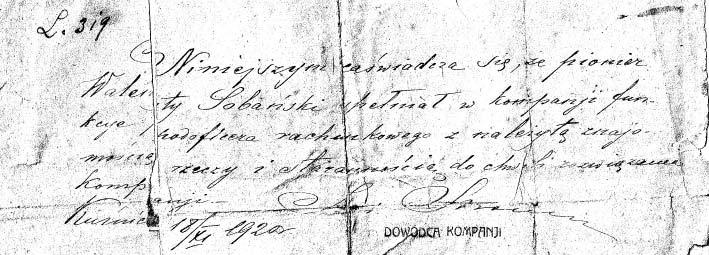 L. 319
Niniejszym zaświadcza się, że pionier
Walenty Sobański spełniał w kompanji fun-
kcje podoficera rachunkowego z należytą znajo-
mością rzeczy i starannością do chwili rozwiązania
kompanji.
18/XI 1920r
DOWÓDCA KOMPANJI